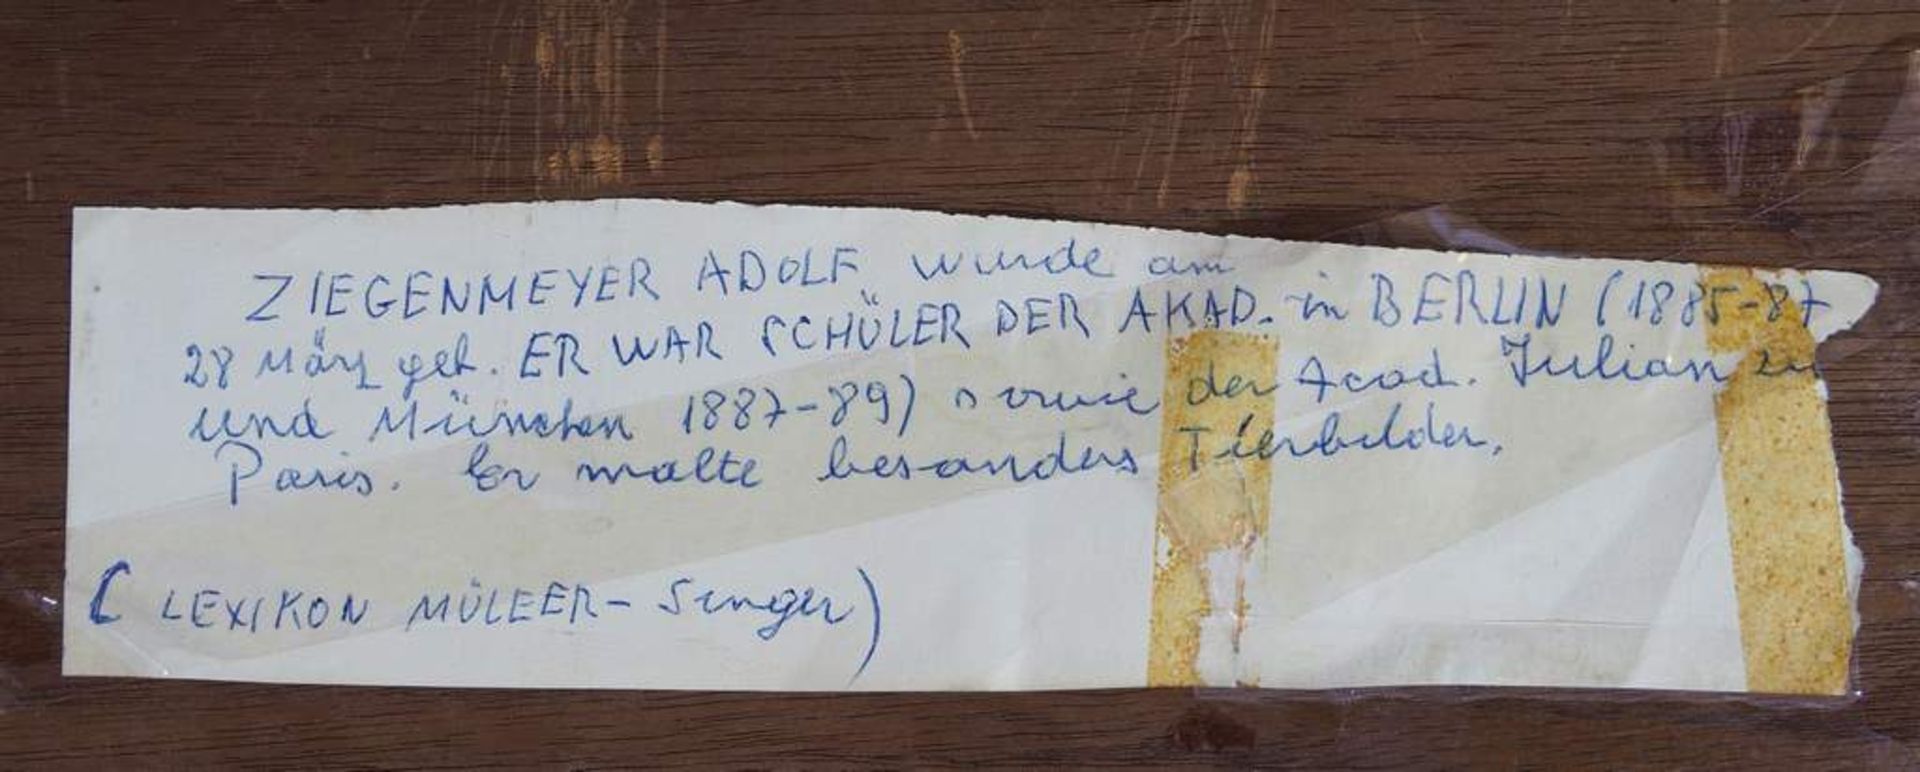 ZIEGENMEYER ADOLF wurde am
28 März geb. ER WAR SCHÜLER DER AKAD. in BERLIN (1885-87
und München 1887-89) sowie der Acad. Julian zu
Paris. Er malte besonders Tierbilder.
(LEXIKON MÜLLER-Singer)